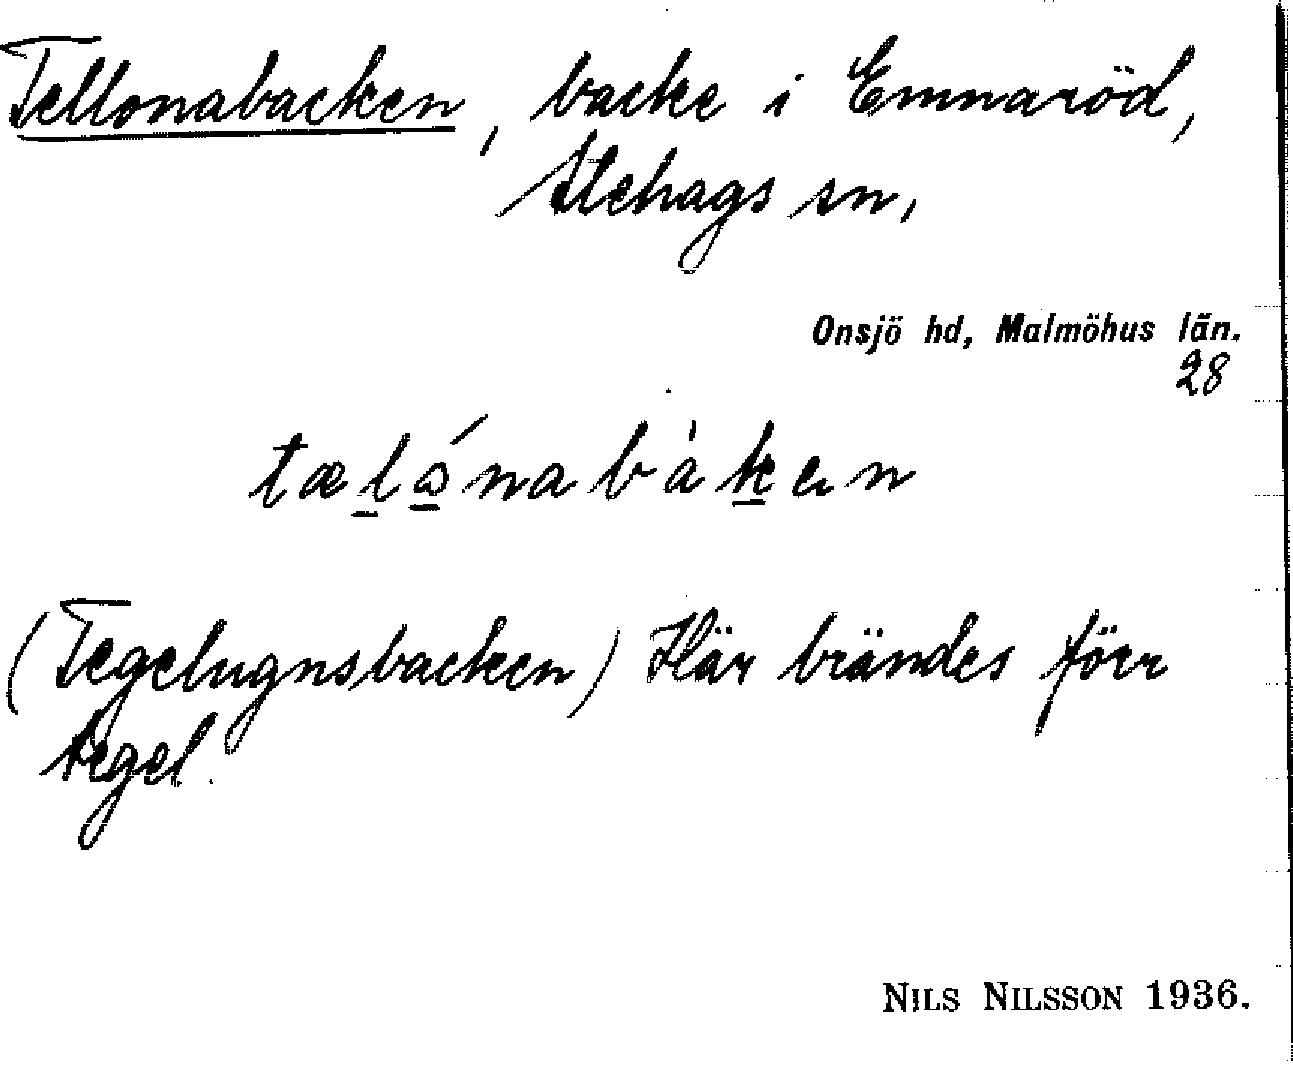 Tellonabacken, backe i Emmaröd,
Stehags sn,
Onsjö hd, Malmöhus län.
28
(Tegelugnsbacken) Här brändes förr
tegel.
NILS NILSSON 1936.